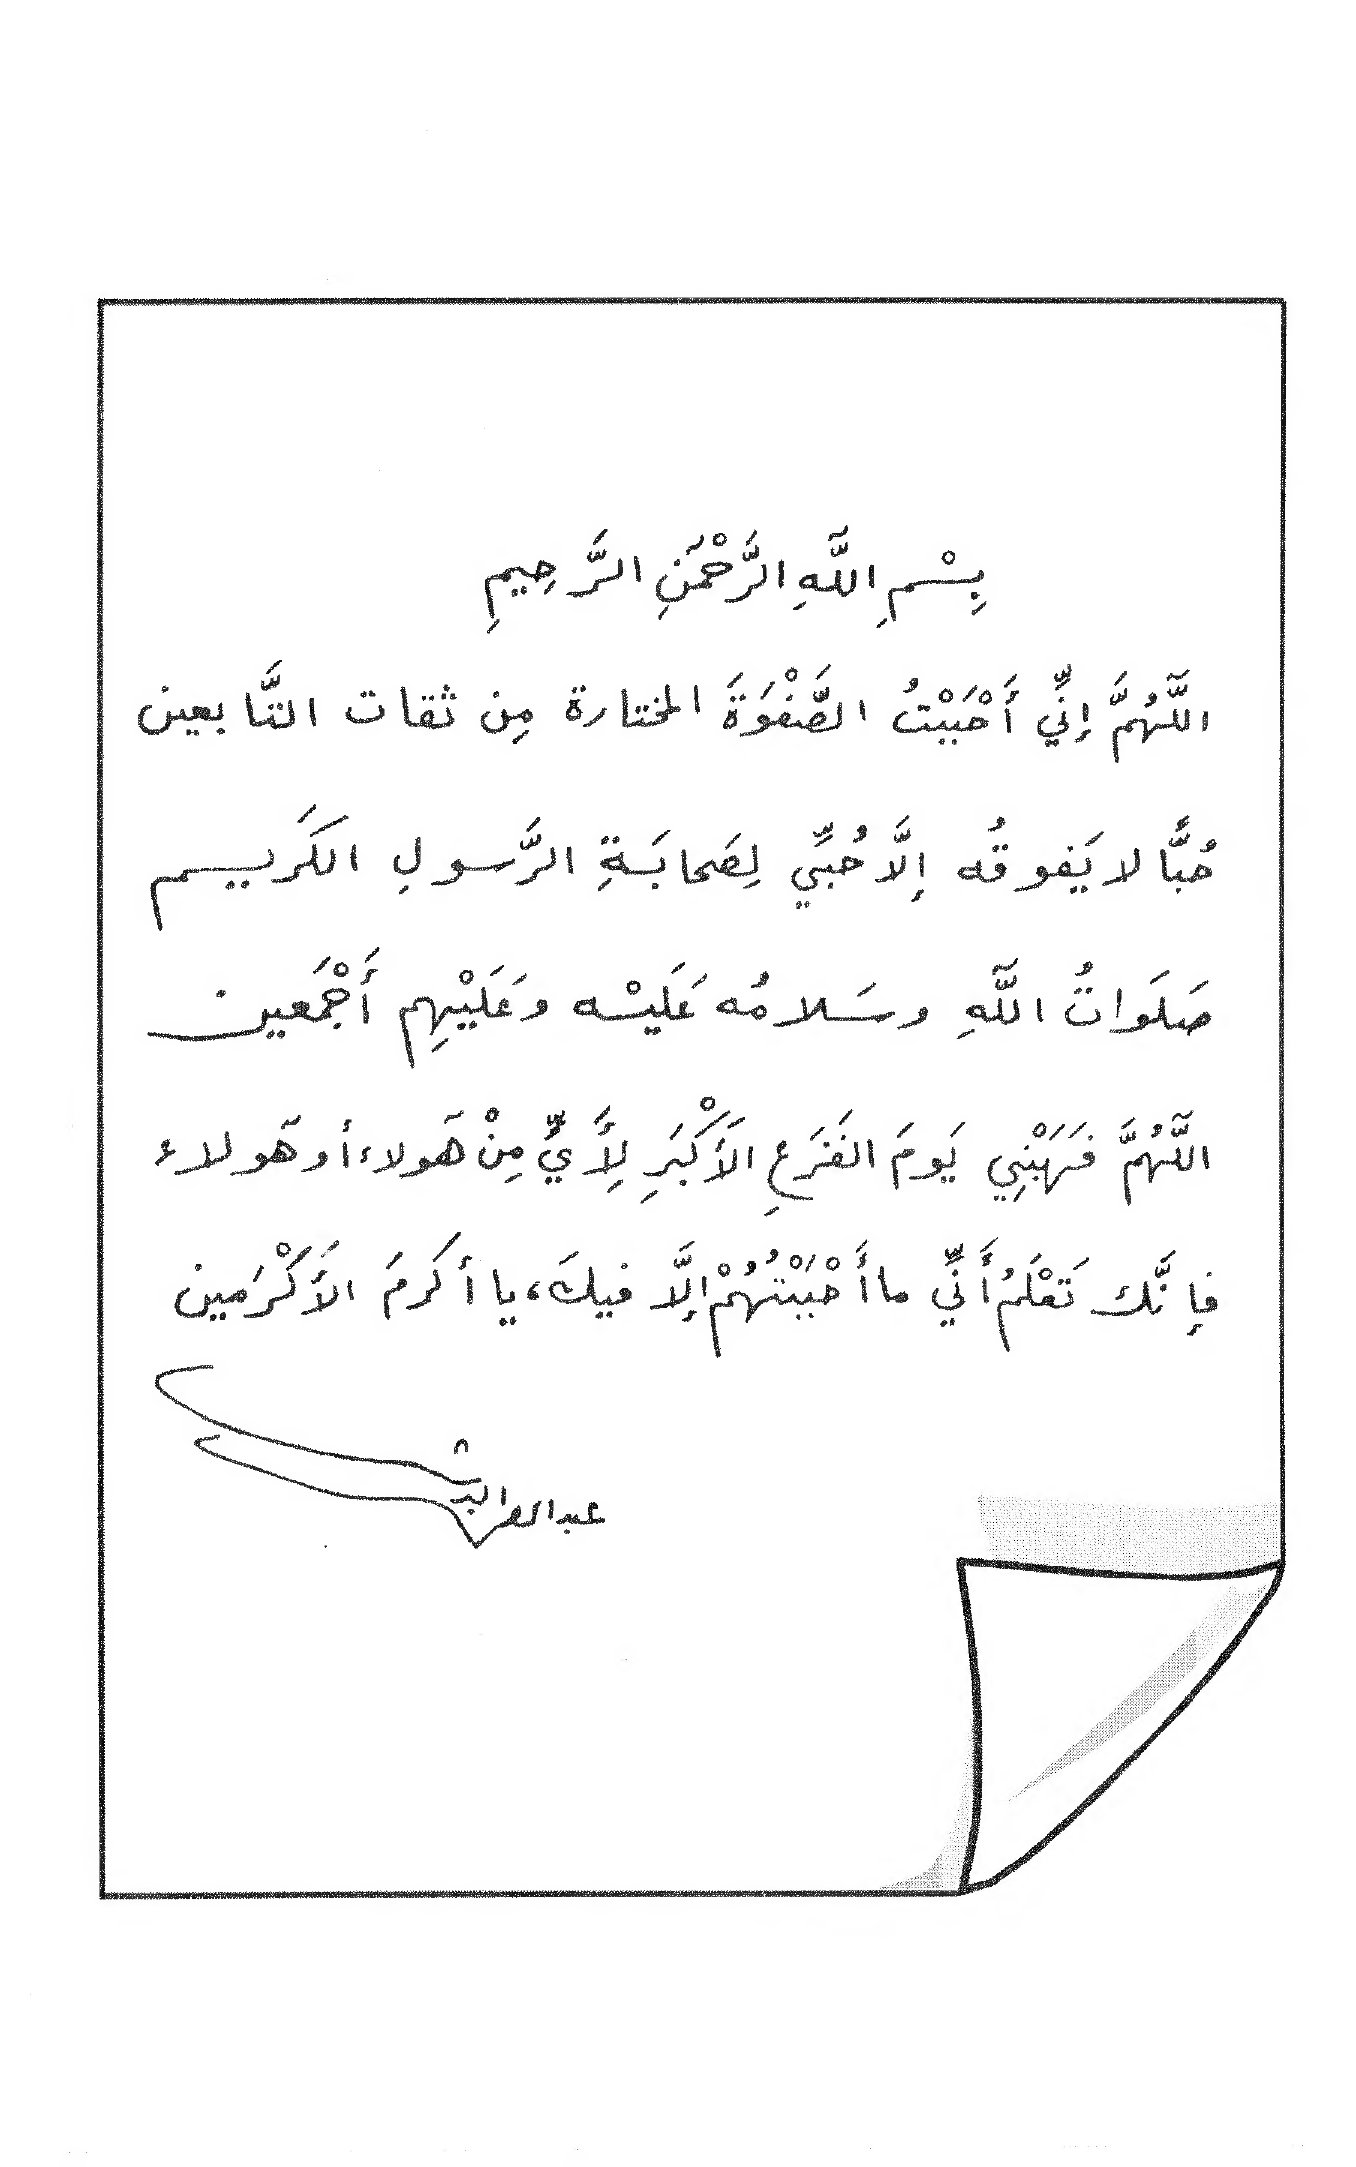 بِسْمِ اللَّهِ الرَّحْمَٰنِ الرَّحِيمِ
اللَّهُمَّ إِنِّي أَحْبَبْتُ الصَّفْوَةَ المختارة مِن ثقات التَّابعين
حُبًّا لا يَفوقُه إِلَّا حُبِّي لِصَحابَةِ الرَّسولِ الكَريم
صَلَوَاتُ اللَّهِ وسَلامُه عَلَيْه وعَلَيْهِم أَجْمَعين
اللَّهُمَّ فَهَبْنِي يَومَ الفَزَعِ الأَكْبَرِ لِأَيٍّ مِنْ هَٓولاء أو هَٓولاء
فإِنَّك تَعْلَمُ أَنِّي ما أَحْبَبْتُهُمْ إِلَّا فيكَ، يا أكرَمَ الأَكْرَمين